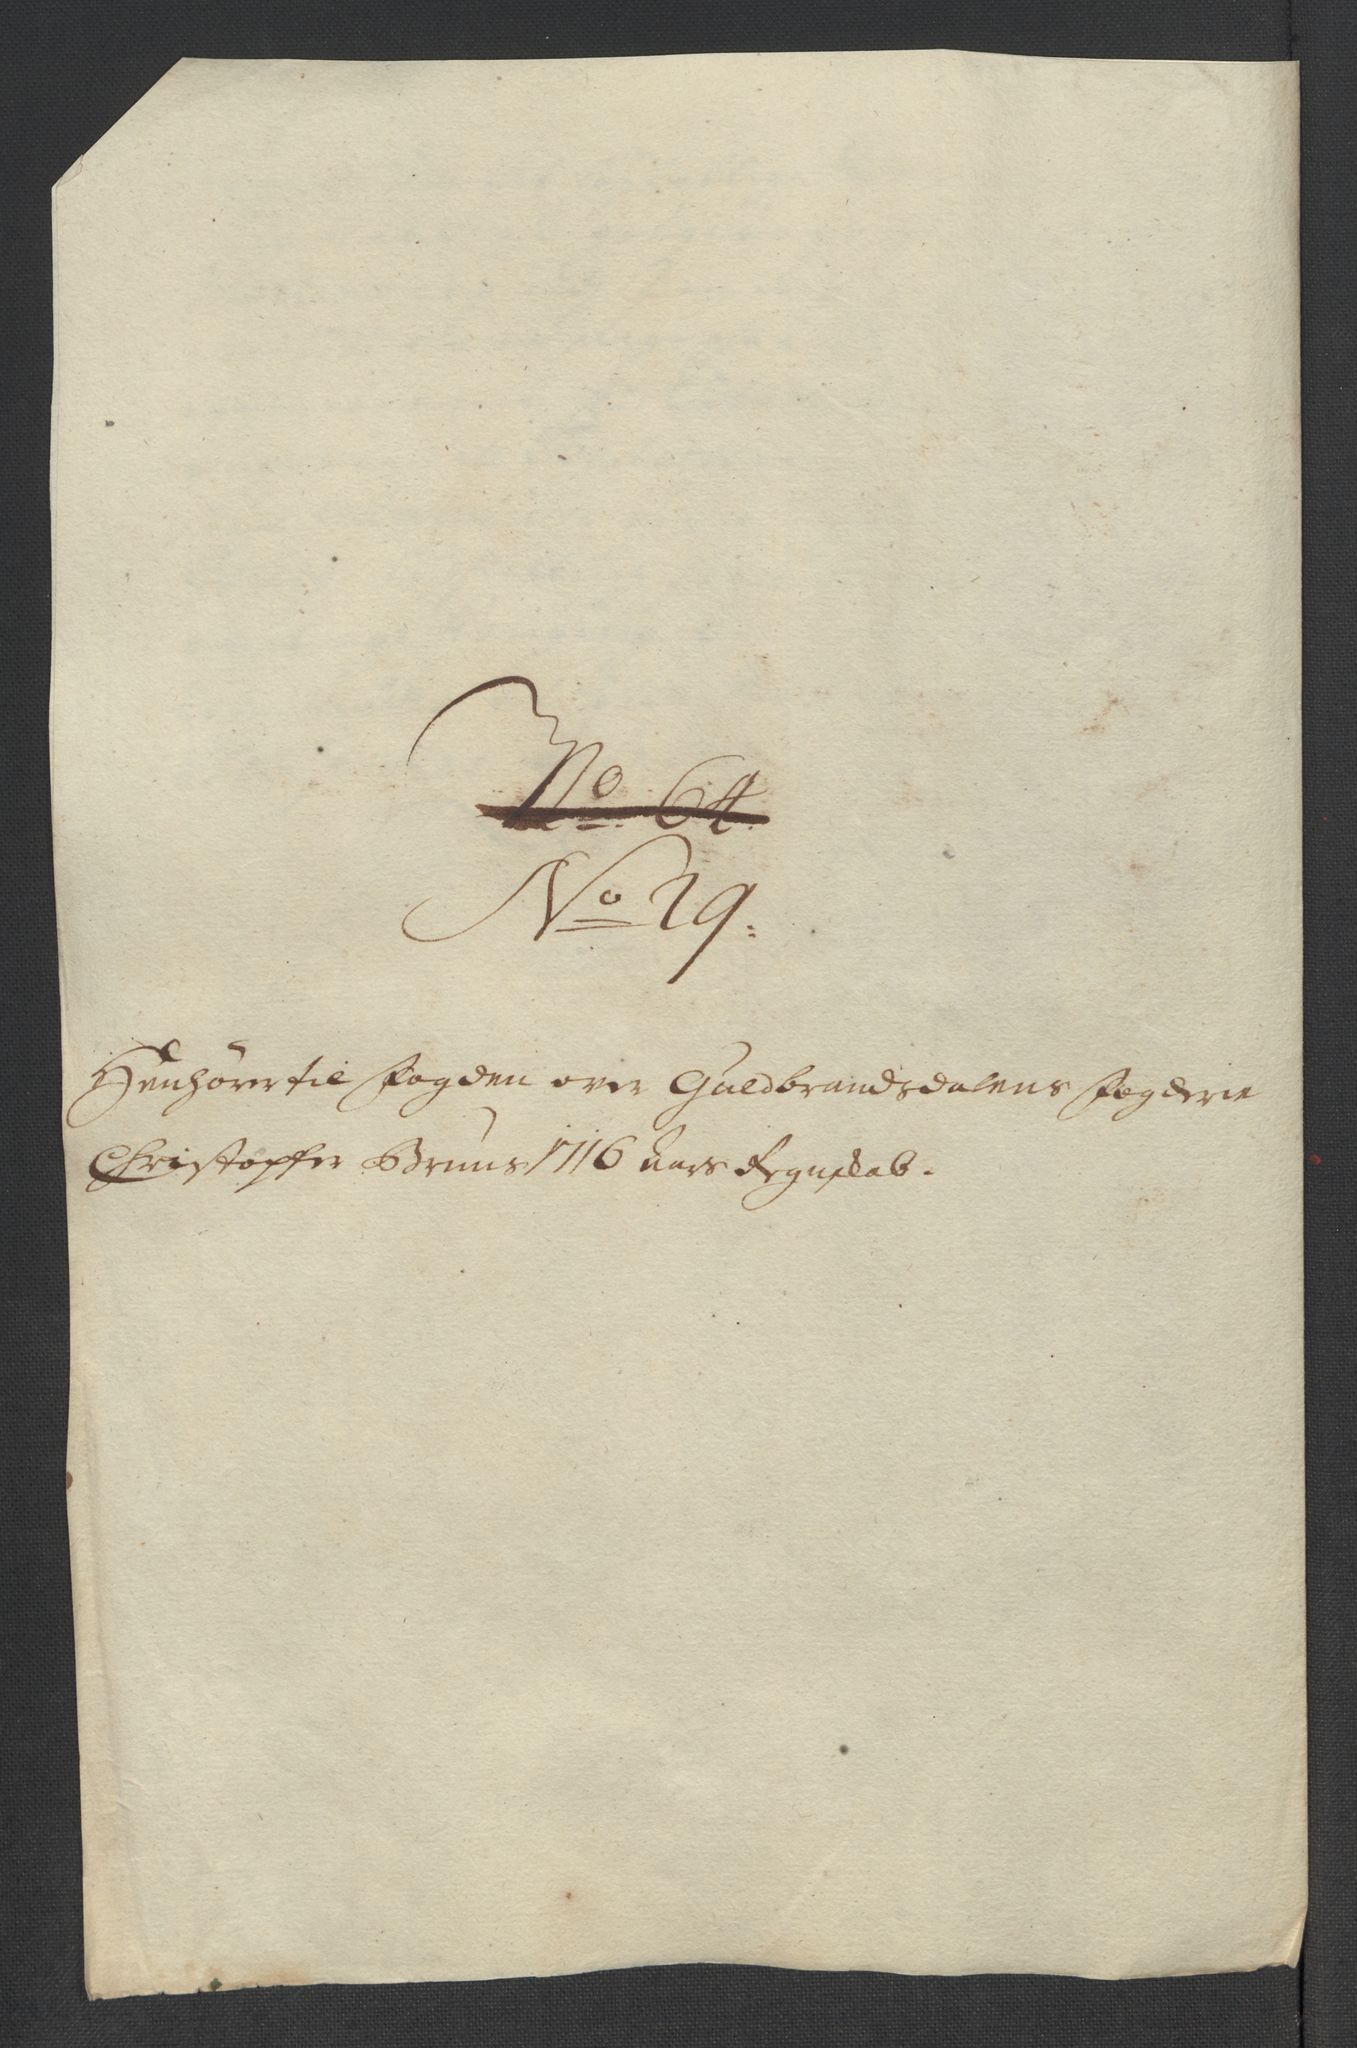 No 64.
No 29.
Henhörer til Fogden over Guldbrandsdalens Fogderie
Christopffer Bruuns 1716 Aars Regnskab.